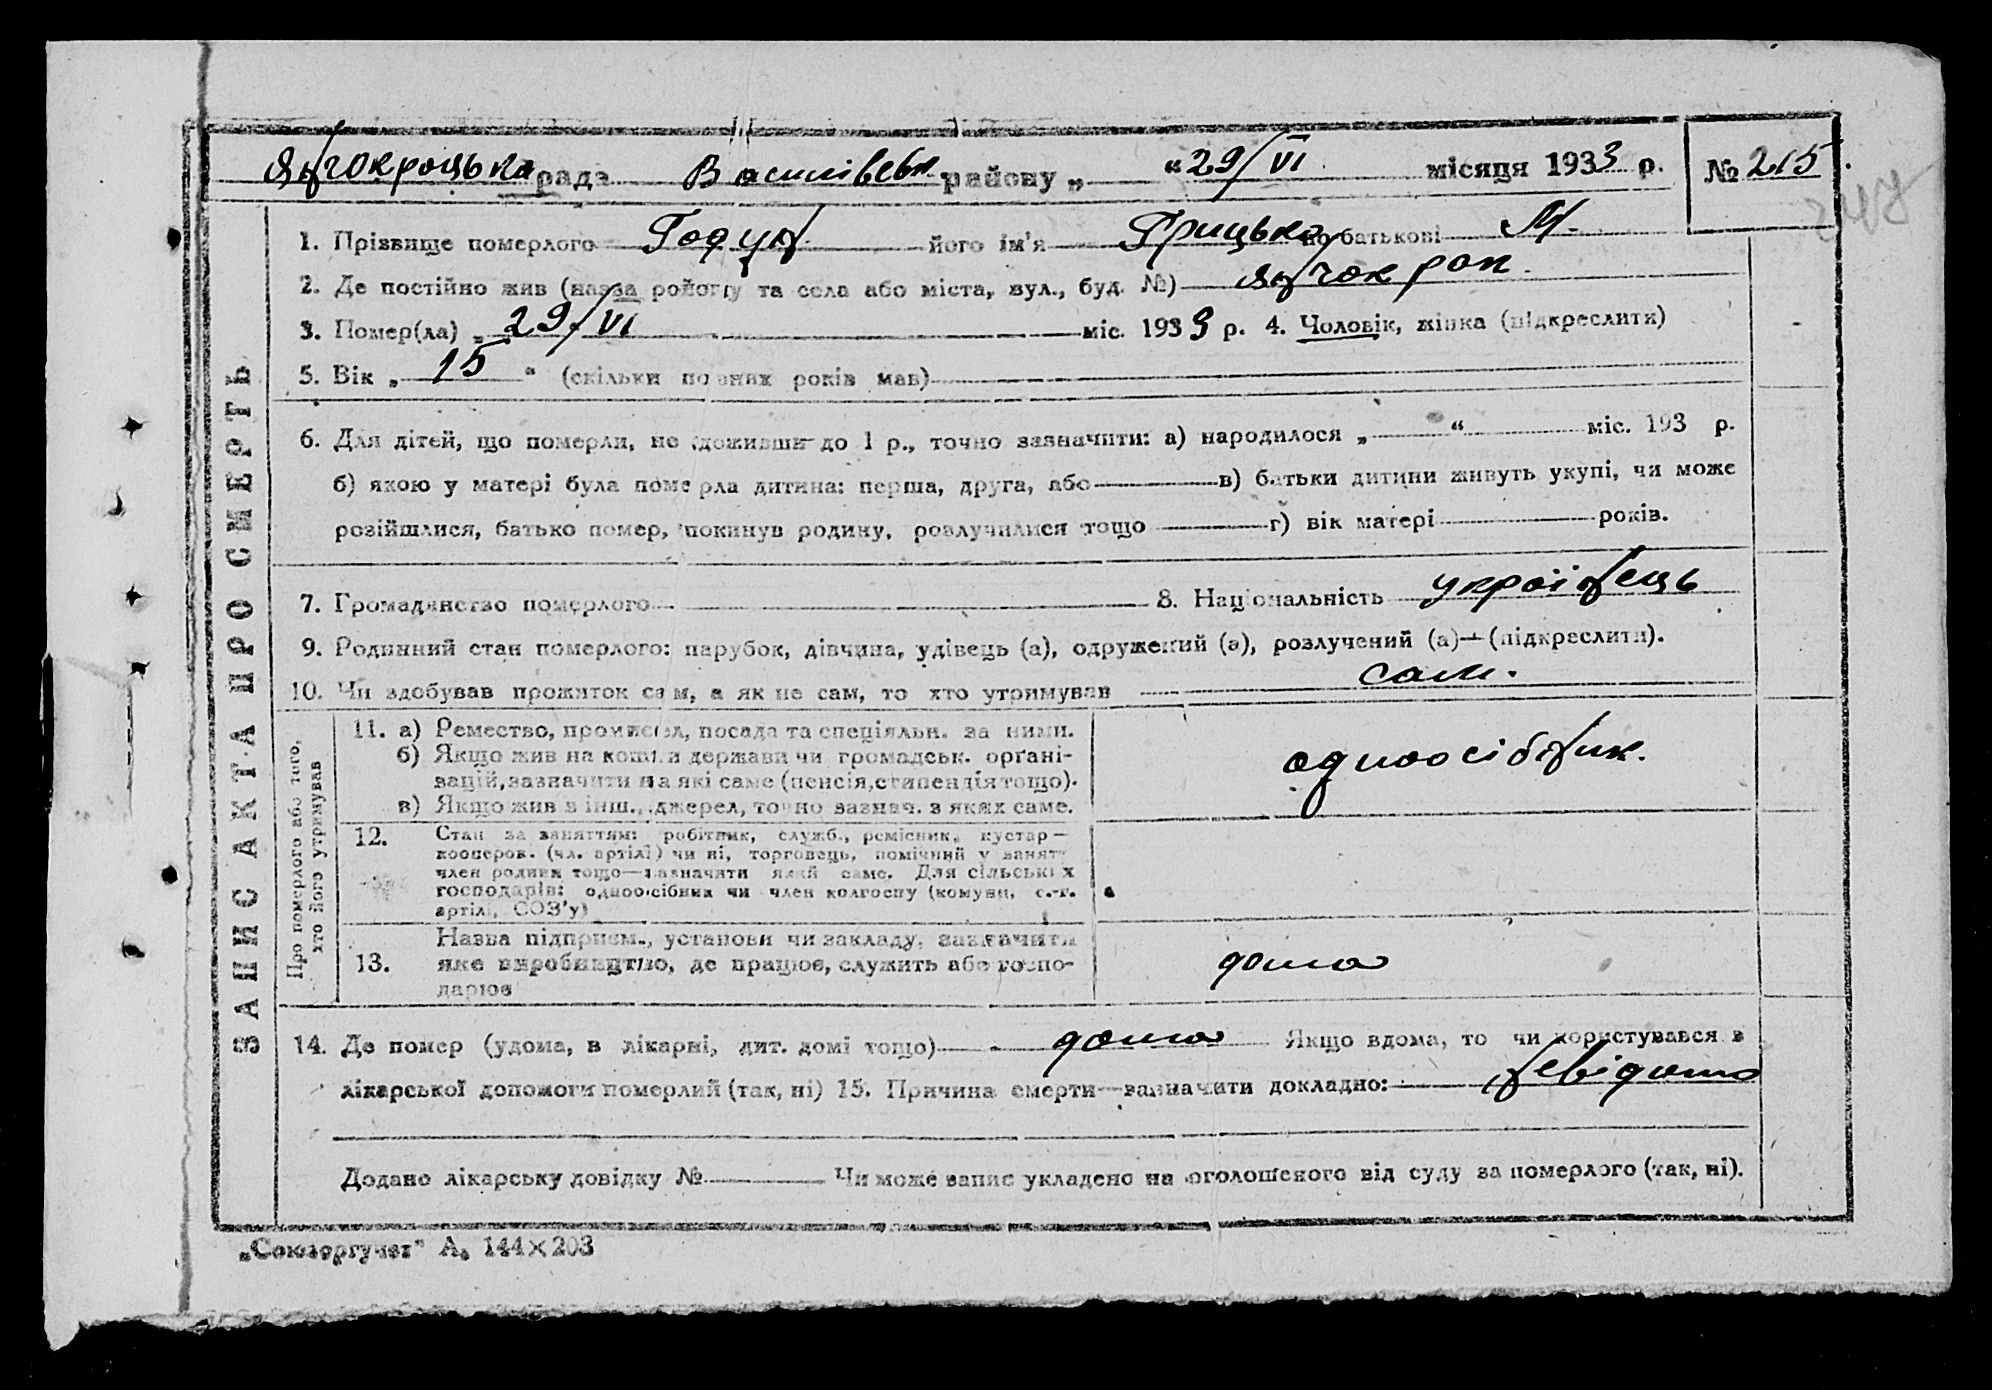 Янчокрацька рада Василівськ району „ “29/VI місяця 1933 р. № 215
1. Прізвище померлого Годун його ім'я Грицько по батькові М.
2. Де постійно жив (назва району та села або міста, вул., буд. №) Янчокрак
3. Помер(ла) „ 29/VI міс. 1933 р. 4. Чоловік, жінка (підкреслити)
5. Вік „ 15 “ (скільки повних років мав)
6. Для дітей, що померли, не доживши до 1 р., точно зазначити: а) народилося „ “ міс. 193 р.
б) якою у матері була померла дитина: перша, друга, або в) батьки дитини живуть укупі, чи може
розійшлися, батько помер, покинув родину, розлучилися тощо г) вік матері років.
7. Громадянство померлого 8. Національність українець
9. Родинний стан померлого: парубок, дівчина, удівець (а), одружений (а), розлучений (а)—(підкреслити).
10. Чи здобував прожиток сам, а як не сам, то хто утримував сам.
ЗАПИС АКТА ПРО СМЕРТЬ
Про померлого або того,
хто його утримував
11. а) Ремество, промисел, посада та спеціяльн. за ними.
б) Якщо жив на кошти держави чи громадськ. органі-
зацій, зазначити на які саме (пенсія, стипендія тощо).
в) Якщо жив з інш. джерел, точно зазнач. з яких саме.
одноосібник.
12. Стан за заняттям: робітник, служб., ремісник, кустар—
кооперов. (чл. артілі) чи ні, торговець, помічний у занятт
член родини тощо—зазначити який саме. Для сільських
господарів: одноосібник чи член колгоспу (комуни, с.-г.
артілі, СОЗ'у)
13. Назва підприєм., установи чи закладу, зазначити
яке виробництво, де працює, служить або госпо-
дарює
дома
14. Де помер (удома, в лікарні, дит. домі тощо) дома Якщо вдома, то чи користувався з
лікарської допомоги померлий (так, ні) 15. Причина смерти—зазначити докладно: невідомо
Додано лікарську довідку № Чи може запис укладено на оголошеного від суду за померлого (так, ні).
„Союзоргучет" А₆ 144×203